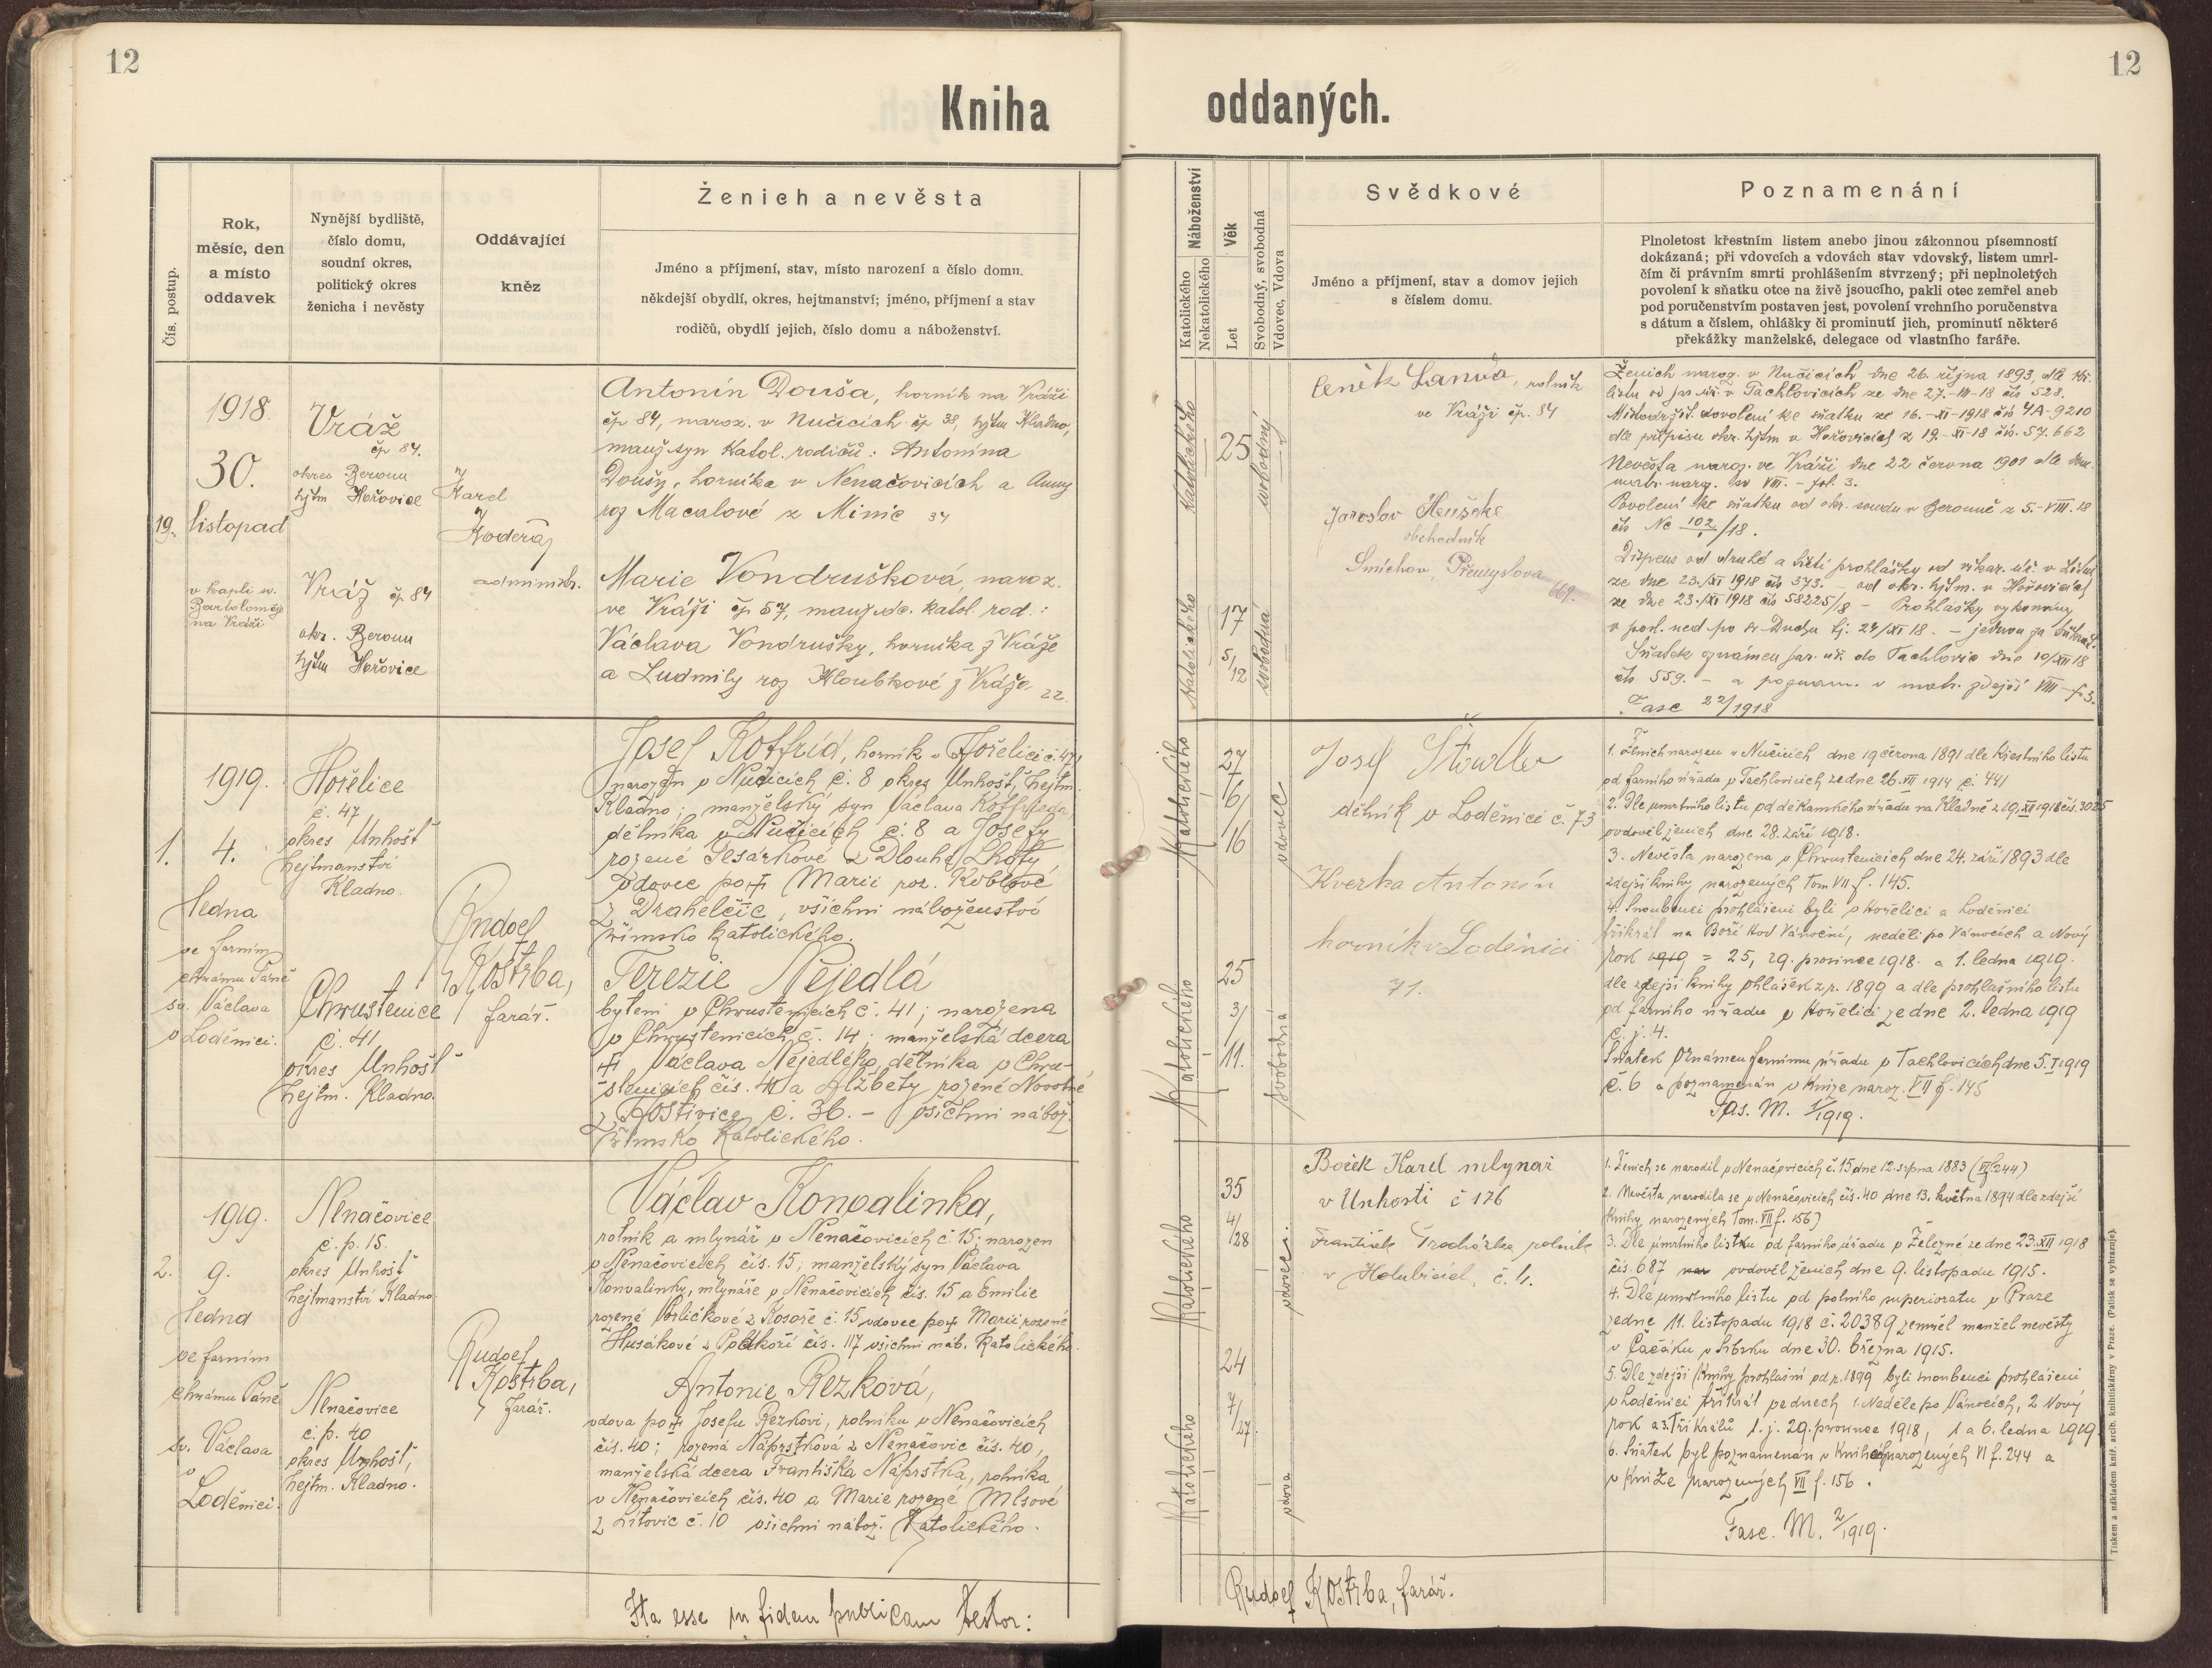 12
12
Kniha
oddaných.
Čís. postup.
Rok,
měsíc, den
a místo
oddavek
Nynější bydliště,
číslo domu,
soudní okres,
politický okres
ženicha i nevěsty
Oddávající
kněz
Ženich a nevěsta
Jméno a příjmení, stav, místo narození a číslo domu.
někdejší obydlí, okres, hejtmanství; jméno, příjmení a stav
rodičů, obydlí jejich, číslo domu a náboženství.
Náboženství
Katolického
Nekatolického
Věk
Let
Svobodný, svobodná
Vdovec, Vdova
Svědkové
Jméno a příjmení, stav a domov jejich
s číslem domu.
Poznamenání
Plnoletost křestním listem anebo jinou zákonnou písemností
dokázaná; při vdovcích a vdovách stav vdovský, listem umrl-
čím či právním smrti prohlášením stvrzený; při neplnoletých
povolení k sňatku otce na živě jsoucího, pakli otec zemřel aneb
pod poručenstvím postaven jest, povolení vrchního poručenstva
s dátum a číslem, ohlášky či prominutí jich, prominutí některé
překážky manželské, delegace od vlastního faráře.
19.
1918.
30.
listopad
v kapli sv.
Bartoloměje
na Vráži
Vráž
čp 84.
okres Beroun
hjtm Hořovice
Vráž čp 84
okr. Beroun
hjtm Hořovice
Karel
Kodera
administr.
Antonín Douša, horník na Vráži
čp 84, naroz. v Nučicích čp 38, hjtm Kladno,
manž. syn katol. rodičů: Antonína
Doušy, horníka v Nenačovicích a Anny
roz Macalové z Minic 34
Marie Vondrušková, naroz.
ve Vráži čp 57, manž. dc. katol. rod.:
Václava Vondrušky, horníka z Vráže
a Ludmily roz Hloubkové z Vráže 22.
Katolického
25
svobodný
Katolického
17
5/12
svobodná
Čeněk Landa, rolník
ve Vráži čp. 84
Jaroslav
obchodník
Smíchov, Přemyslova
669.
Ženich naroz. v Nučicích dne 26. října 1893 dle kř.
listu od far. úř. v Tachlovicích ze dne 27.-III-18 čís 528.
Místodržit. dovolení ke sňatku ze 16.-XI-1918 čís 4A-9210
dle přípisu okr. hjtm v Hořovicích z 19.-XI-18 čís. 57.662
Nevěsta naroz. ve Vráži dne 22 června 1901 dle
matr. naroz. sv VIII. - fol. 3.
Povolení ke sňatku od okr. soudu v Berouně z 5.-VIII.18
čís Nc 102/18.
Dispens od druhé a třetí prohlášky od vikar. úř. v
ze dne 23./XI 1918 čís 373. - od okr. hjtm. v Hořovicích
ze dne 23./XI 1918 čís 58225/18 - Prohlášky vykonány
v posl. ned po sv Duchu tj. 24/XI 18. - jednou za třikrát.
Sňatek oznámen far. úř. do Tachlovic dne 10/XII 18
čís 559. - a poznam. v matr. zdejší VIII - f. 3.
Fasc 22/1918
1.
1919.
4.
ledna
ve farním
chrámu Páně
sv. Václava
v Loděnici.
Hořelice
č. 47
okres Unhošť
hejtmanství
Kladno.
Chrustenice
č. 41
okres Unhošť
hejtm. Kladno.
Rudolf
Kostrba,
farář.
Josef Koffrid, horník v Hořelici č. 47,
narozen v Nučicích č. 8 okres Unhošť, hejtm.
Kladno; manželský syn Václava Koffrida,
dělníka v Nučicích č. 8 a Josefy
rozené Tesárkové z Dlouhé Lhoty,
vdovec po † Marii roz. Koblové
z Drahelčic, všichni náboženství
římsko katolického.
Terezie Nejedlá
bytem v Chrustenicích č. 41; narozena
v Chrustenicích č. 14; manželská dcera
† Václava Nejedlého, dělníka v Chru-
stenicích čís. 40 a Alžběty rozené Novotné
z Hostivice č. 36. - všichni nábož.
římsko katolického.
Katolického
27
6/
16
vdovec
Katolického
25
3/
11.
svobodná
Josef
dělník v Loděnici č. 73
Kverka Antonín
horník v Loděnici
71.
1. Ženich narozen v Nučicích dne 19 června 1891 dle křestního listu
od farního úřadu v Tachlovicích ze dne 26. VII 1914 č. 441
2. Dle úmrtního listu od děkanského úřadu na Kladně z 19. XII 1918 čís. 3025
ovdověl ženich dne 28. září 1918.
3. Nevěsta narozena v Chrustenicích dne 24. září 1893 dle
zdejší knihy narozených Tom VII f. 145.
4. Snoubenci prohlášeni byli v Hořelici a Loděnici
třikrát na Boží Hod Vánoční, neděli po Vánocích a Nový
rok 1919 = 25, 29. prosince 1918. a 1. ledna 1919.
dle zdejší knihy ohlášek z r. 1899 a dle prohlašního listu
od farního úřadu v Hořelici ze dne 2. ledna 1919
č. j. 4.
Sňatek oznámen farnímu úřadu v Tachlovicích dne 5. I 1919
č. 6 a poznamenán v knize naroz. VII f. 145
Fas. M. 1/1919.
2.
1919.
9.
ledna
ve farním
chrámu Páně
sv. Václava
v
Loděnici.
Nenačovice
č. p. 15.
okres Unhošť
hejtmanství Kladno
Nenačovice
č. p. 40
okres Unhošť,
hejtm. Kladno.
Rudolf
Kostrba,
farář.
Václav Konvalinka,
rolník a mlynář v Nenačovicích č 15; narozen
v Nenačovicích čís. 15; manželský syn Václava
Konvalinky, mlynáře v Nenačovicích čís. 15 a Emilie
rozené Vorlíčkové z Kosoře č. 15 vdovec po † Marii rozené
Husákové z Podkoží čís. 117 všichni náb. katolického.
Antonie Rezková,
vdova po † Josefu Rezkovi, rolníku v Nenačovicích
čís. 40; rozená Náprstková z Nenačovic čís. 40,
manželská dcera Františka Náprstka, rolníka
v Nenačovicích čís. 40 a Marie rozené Mlsové
z Litovic č. 10 všichni nábož. katolického.
Katolického
35
4/
28
vdovec.
Katolického
24
7/
27.
vdova
Boček Karel mlynář
v Unhošti č 176
František Procházka rolník
v Holubicích č. 4.
1. Ženich se narodil v Nenačovicích č. 15 dne 12. srpna 1883 (VI f. 244)
2. Nevěsta narodila se v Nenačovicích čís. 40 dne 13. května 1894 dle zdejší
knihy narozených Tom. VII f. 156)
3. Dle úmrtního listu od farního úřadu v Železné ze dne 23. XII 1918
čís. 687 ovdověl ženich dne 9. listopadu 1915.
4. Dle úmrtního listu od polního superiorátu v Praze
ze dne 11. listopadu 1918 č. 20389 zemřel manžel nevěsty
v Čačáku v Srbsku dne 30. března 1915.
5. Dle zdejší knihy prohlášní od r. 1899 byli snoubenci prohlášeni
v Loděnici třikrát ve dnech 1. Neděle po Vánocích, 2 Nový
rok a 3. Tří Králů t. j. 29. prosince 1918, 1 a 6. ledna 1919
6. Sňatek byl poznamenán v knize narozených VI f. 244 a
v knize narozených VII f. 156.
Fasc. M. 2/1919.
Ita esse in fidem publicam testor:
Rudolf Kostrba, farář.
Tiskem a nákladem kníž. arcib. knihtiskárny v Praze. (Patisk se vyhrazuje).